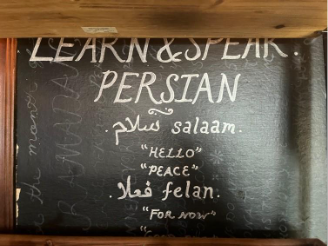 LEARN & SPEAK
PERSIAN
سلام salaam.
"HELLO"
"PEACE"
فعلا felan.
"FOR NOW"